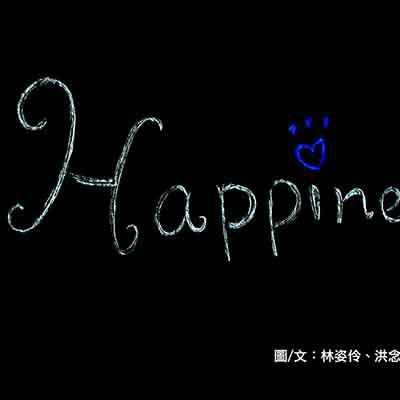 Happine
圖/文：林姿伶、洪念